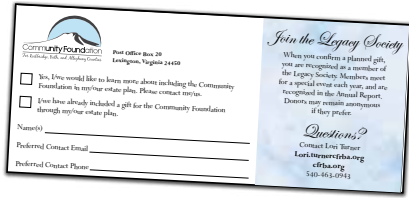 Community Foundation
For Rockbridge, Bath, and Alleghany Counties
Post Office Box 20
Lexington, Virginia 24450
Yes, I/we would like to learn more about including the Community
Foundation in my/our estate plan. Please contact me/us.
I/we have already included a gift for the Community Foundation
through my/our estate plan.
Name(s)
Preferred Contact Email
Preferred Contact Phone
Join the Legacy Society
When you confirm a planned gift,
you are recognized as a member of
the Legacy Society. Members meet
for a special event each year, and are
recognized in the Annual Report.
Donors may remain anonymous
if they prefer.
Questions?
Contact Lori Turner
Lori.turner@cfrba.org
cfrba.org
540-463-0943